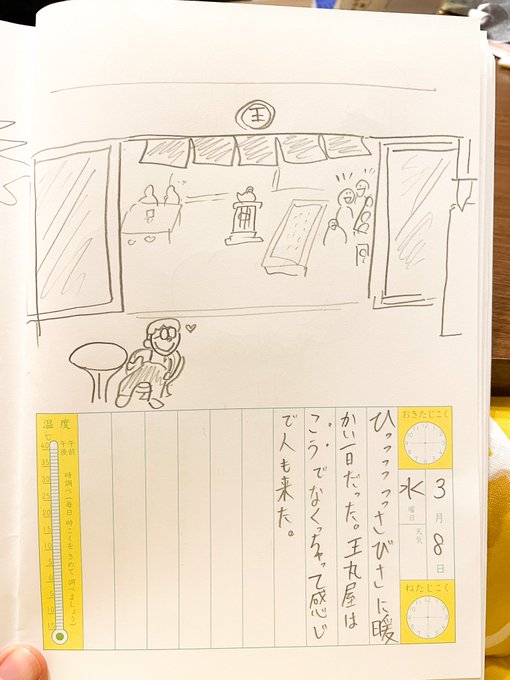 王
おきたじこく
3月8日
水曜日
天気
ねたじこく
ひっっっっっっさびさに暖
かい一日だった。王丸屋は
こうでなくっちゃって感じ
で人も来た。
温度
℃
午前
午後
時調べ(毎日 時こくをきめて 調べましょう)
40
35
30
25
20
15
10
5
0
5
10
15